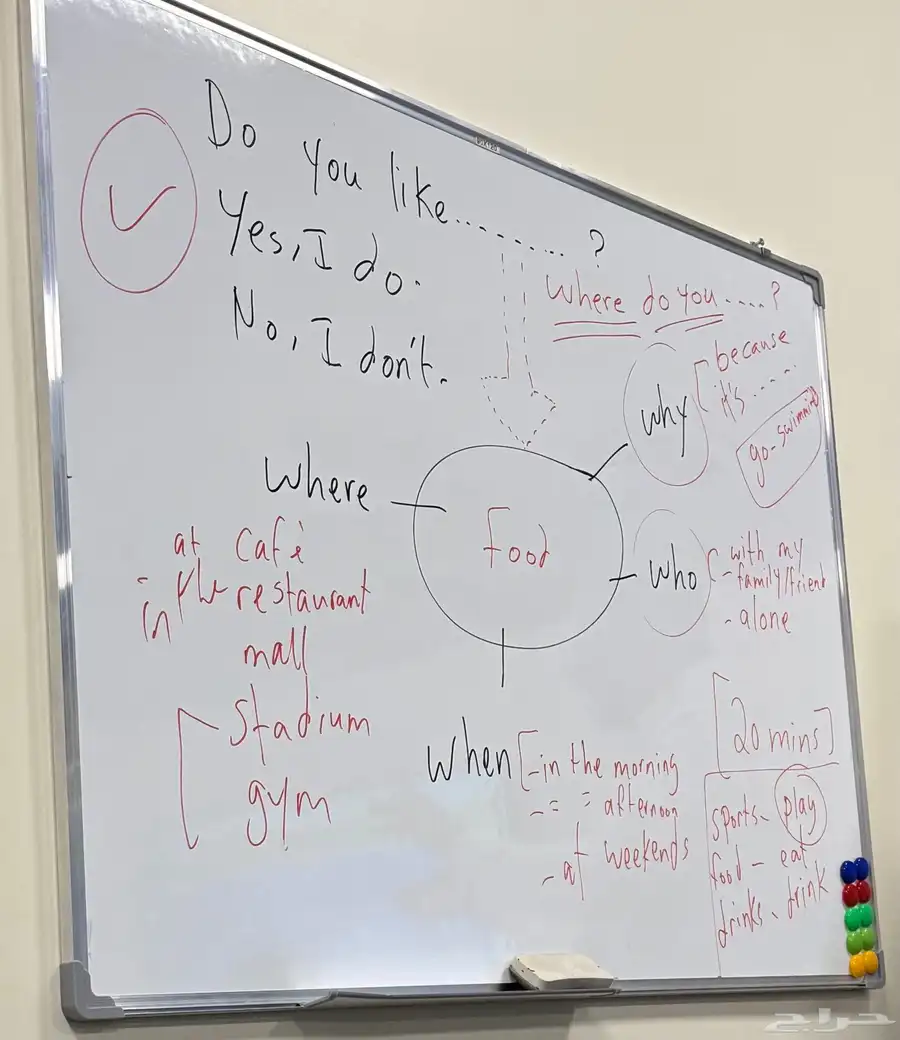 Do you like ............ ?
Yes, I do.
No, I don't.
Where do you ..... ?
why
because
it's .....
go-swimming
where
at café
in the restaurant
mall
stadium
gym
food
who
with my
- family/friend
- alone
when
- in the morning
- = = afternoon
- at weekends
20 mins
sports - play
food - eat
drinks - drink
حراج